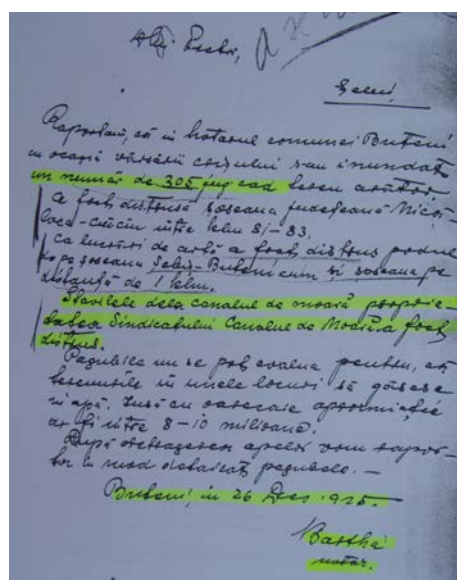 Raportăm, că in hotarul comunei Buteni
cu ocazia vărsării crişului sau inundat
un număr de 305 jug cad teren arător
a fost distrusă şoseaua judeţeană
loca-Cuciu intre klm 81-83.
Ca lucrări de artă a fost distrus podul
de pe şoseaua Sebiş-Buteni cum şi şoseaua pe
distanţă de 1 klm.
Stavilele dela canalul de moară proprie-
tatea Sindicatului Canalul de Moară a fost
distrus.
Pagubile nu se pot evalua pentru, că
terenurile in unele locuri să găsesc
in apă. Insă cu oarecare aproximaţie
ar fi intre 8-10 milioane.
După retragerea apelor vom rapor-
ta in mod detailat pagubele. -
Buteni, in 26 Dec. 1925.
Bartha
notar.